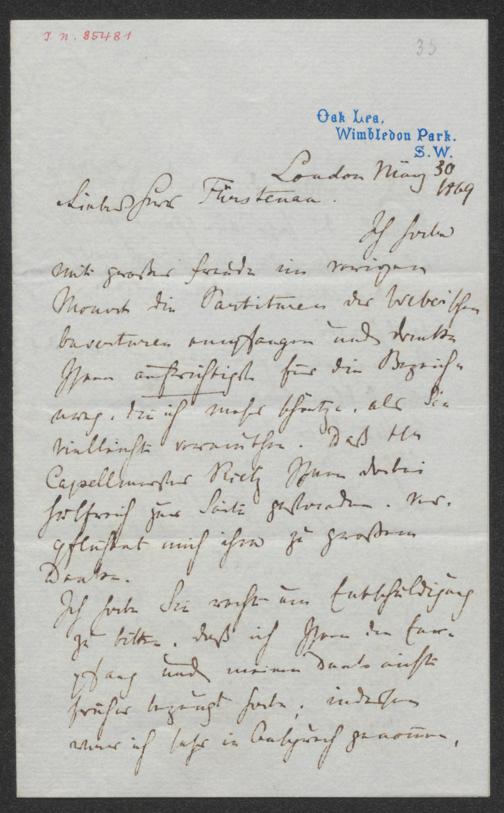 I. N. 85481
35
Oak Lea,
Wimbledon Park.
S.W.
London März 30
1869
Lieber Herr Fürstenau.
Ich habe
mit großer Freude im vorigen
Monat die Partituren der Weberschen
Ouverturen empfangen und danke
Ihnen aufrichtigst für die
die ich mehr schätze, als Sie
vielleicht vermuthen. Daß Hr
Capellmeister Rietz Ihnen dabei
hülfreich zur Seite gestanden, ver-
pflichtet mich ihm zu großem
Danke.
Ich habe Sie recht um Entschuldigung
zu bitten, daß ich Ihnen den Em-
pfang und meinen Dank nicht
früher bezeugt habe, indessen
war ich sehr in Anspruch genommen,